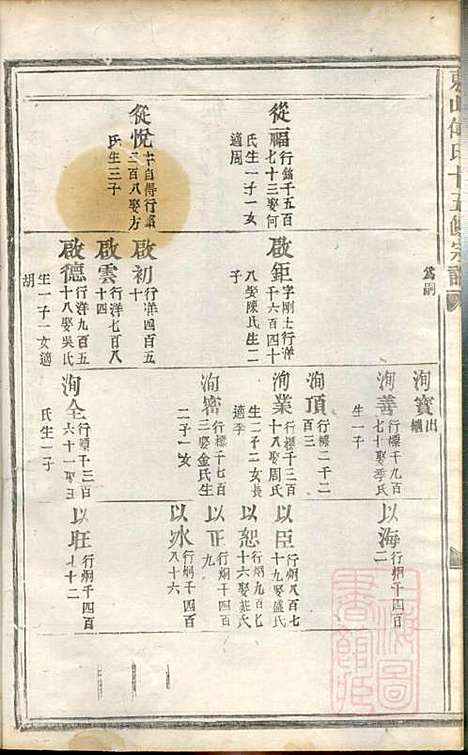 東山傅氏十五修宗譜
爲嗣
從福
行鎗千五百
七十三娶何
氏生一子一女
適周
從悅
字自得行鎗
三百八娶方
氏生三子
啟鉅
字剛士行洋
千六百四十
八娶陳氏生二
子
啟初
行洋四百五
十
啟雲
行洋七百八
十四
啟德
行洋九百五
十八娶吳氏
生一子一女適
胡
洵寶
出繼
洵善
行標千九百
七十娶季氏
生一子
洵頂
行標二千二
百三
洵業
行標千三百
十八娶周氏
生二子二女長
適季
洵密
行標千七百
三娶金氏生
二子一女
洵全
行標千三百
六十一娶王
氏生一子
以海
行炯千四百
二
以臣
行炯八百七
十九娶盛氏
以恕
行炯九百七
十六娶莊氏
以正
行炯千四百
九
以水
行炯千四百
八十六
以旺
行炯千四百
七十二
上海圖
書館藏